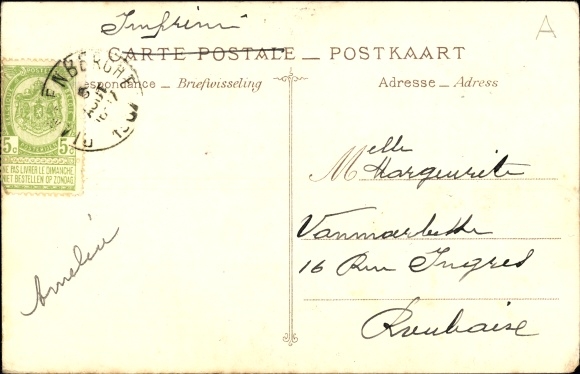 Imprimé
A
CARTE POSTALE _ POSTKAART
spondance _ Briefwisseling
Adresse _ Adress
ENBERGHE
AOUT
1907
POSTERIJEN
5c 5c
NE PAS LIVRER LE DIMANCHE
NIET BESTELLEN OP ZONDAG
Melle Margeurite
Vanmarbekke
16 Rue Ingres
Roubaix
Amélie